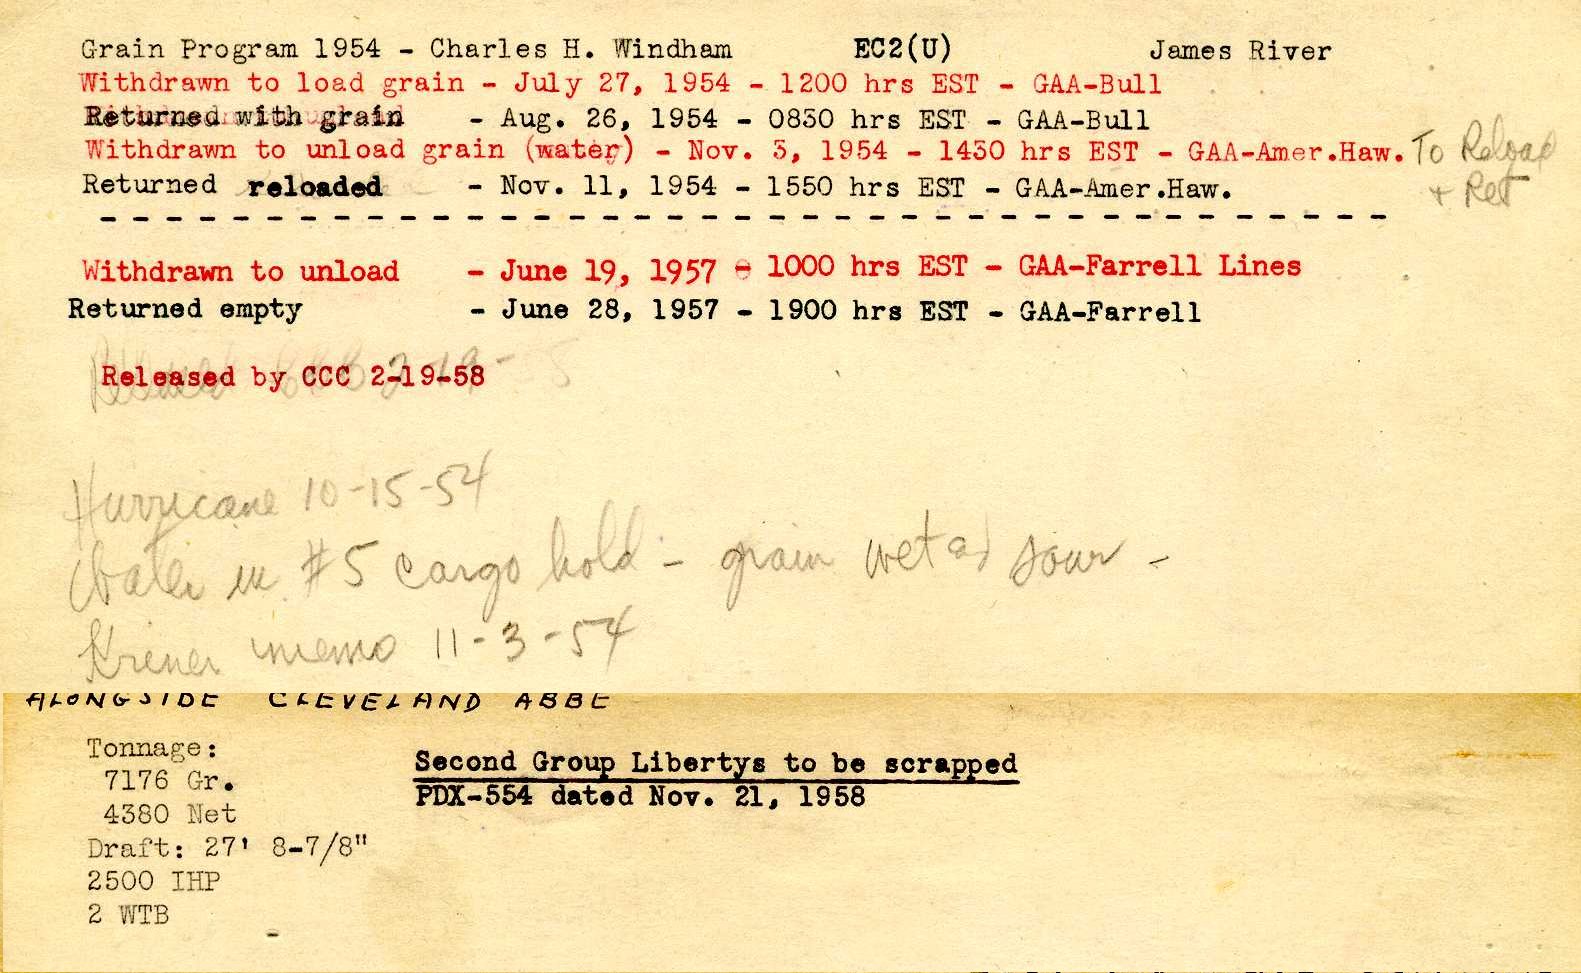 Grain Program 1954 - Charles H. Windham EC2(U) James River
Withdrawn to load grain - July 27, 1954 - 1200 hrs EST - GAA-Bull
Returned with grain - Aug. 26, 1954 - 0830 hrs EST - GAA-Bull
Withdrawn to unload grain (water) - Nov. 3, 1954 - 1430 hrs EST - GAA-Amer.Haw. To Reload
+ Ret
Returned reloaded - Nov. 11, 1954 - 1550 hrs EST - GAA-Amer.Haw.
Withdrawn to unload - June 19, 1957 - 1000 hrs EST - GAA-Farrell Lines
Returned empty - June 28, 1957 - 1900 hrs EST - GAA-Farrell
Released by CCC 2-19-58
Hurricane 10-15-54
Water in #5 cargo hold - grain wet ad sour -
memo 11-3-54
ALONGSIDE CLEVELAND ABBE
Tonnage:
7176 Gr.
4380 Net
Draft: 27' 8-7/8"
2500 IHP
2 WTB
Second Group Libertys to be scrapped
PDX-554 dated Nov. 21, 1958